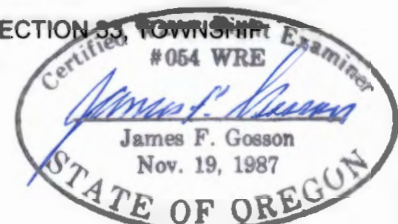 ECTION 33, TOWNSHIP
Certified Examiner
#054 WRE
James F. Gosson
James F. Gosson
Nov. 19, 1987
STATE OF OREGON